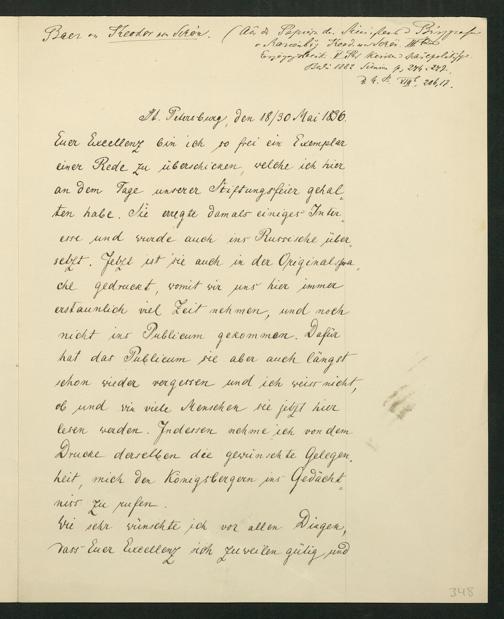 Baer an Theodor von Schön. (Aus d. Papieren des Ministers u. Burggrafen
v. Marienburg Theodor von Schön.
Berlin 1882 p. 246-249.
St. Petersburg, den 18/30 Mai 1836.
Euer Excellenz bin ich so frei ein Exemplar
einer Rede zu überschicken, welche ich hier
an dem Tage unserer Stiftungsfeier gehal-
ten habe. Sie erregte damals einiges Inter-
esse und wurde auch ins Russische über-
setzt. Jetzt ist sie auch in der Originalspra-
che gedruckt, womit wir uns hier immer
erstaunlich viel Zeit nehmen, und noch
nicht ins Publicum gekommen. Dafür
hat das Publicum sie aber auch längst
schon wieder vergessen und ich weiss nicht,
ob und wie viele Menschen sie jetzt hier
lesen werden. Indessen nehme ich von dem
Drucke derselben die gewünschte Gelegen-
heit, mich den Königsbergern ins Gedächt-
niss zu rufen.
Wie sehr wünschte ich vor allen Dingen,
dass Euer Excellenz sich zuweilen gütig und
348